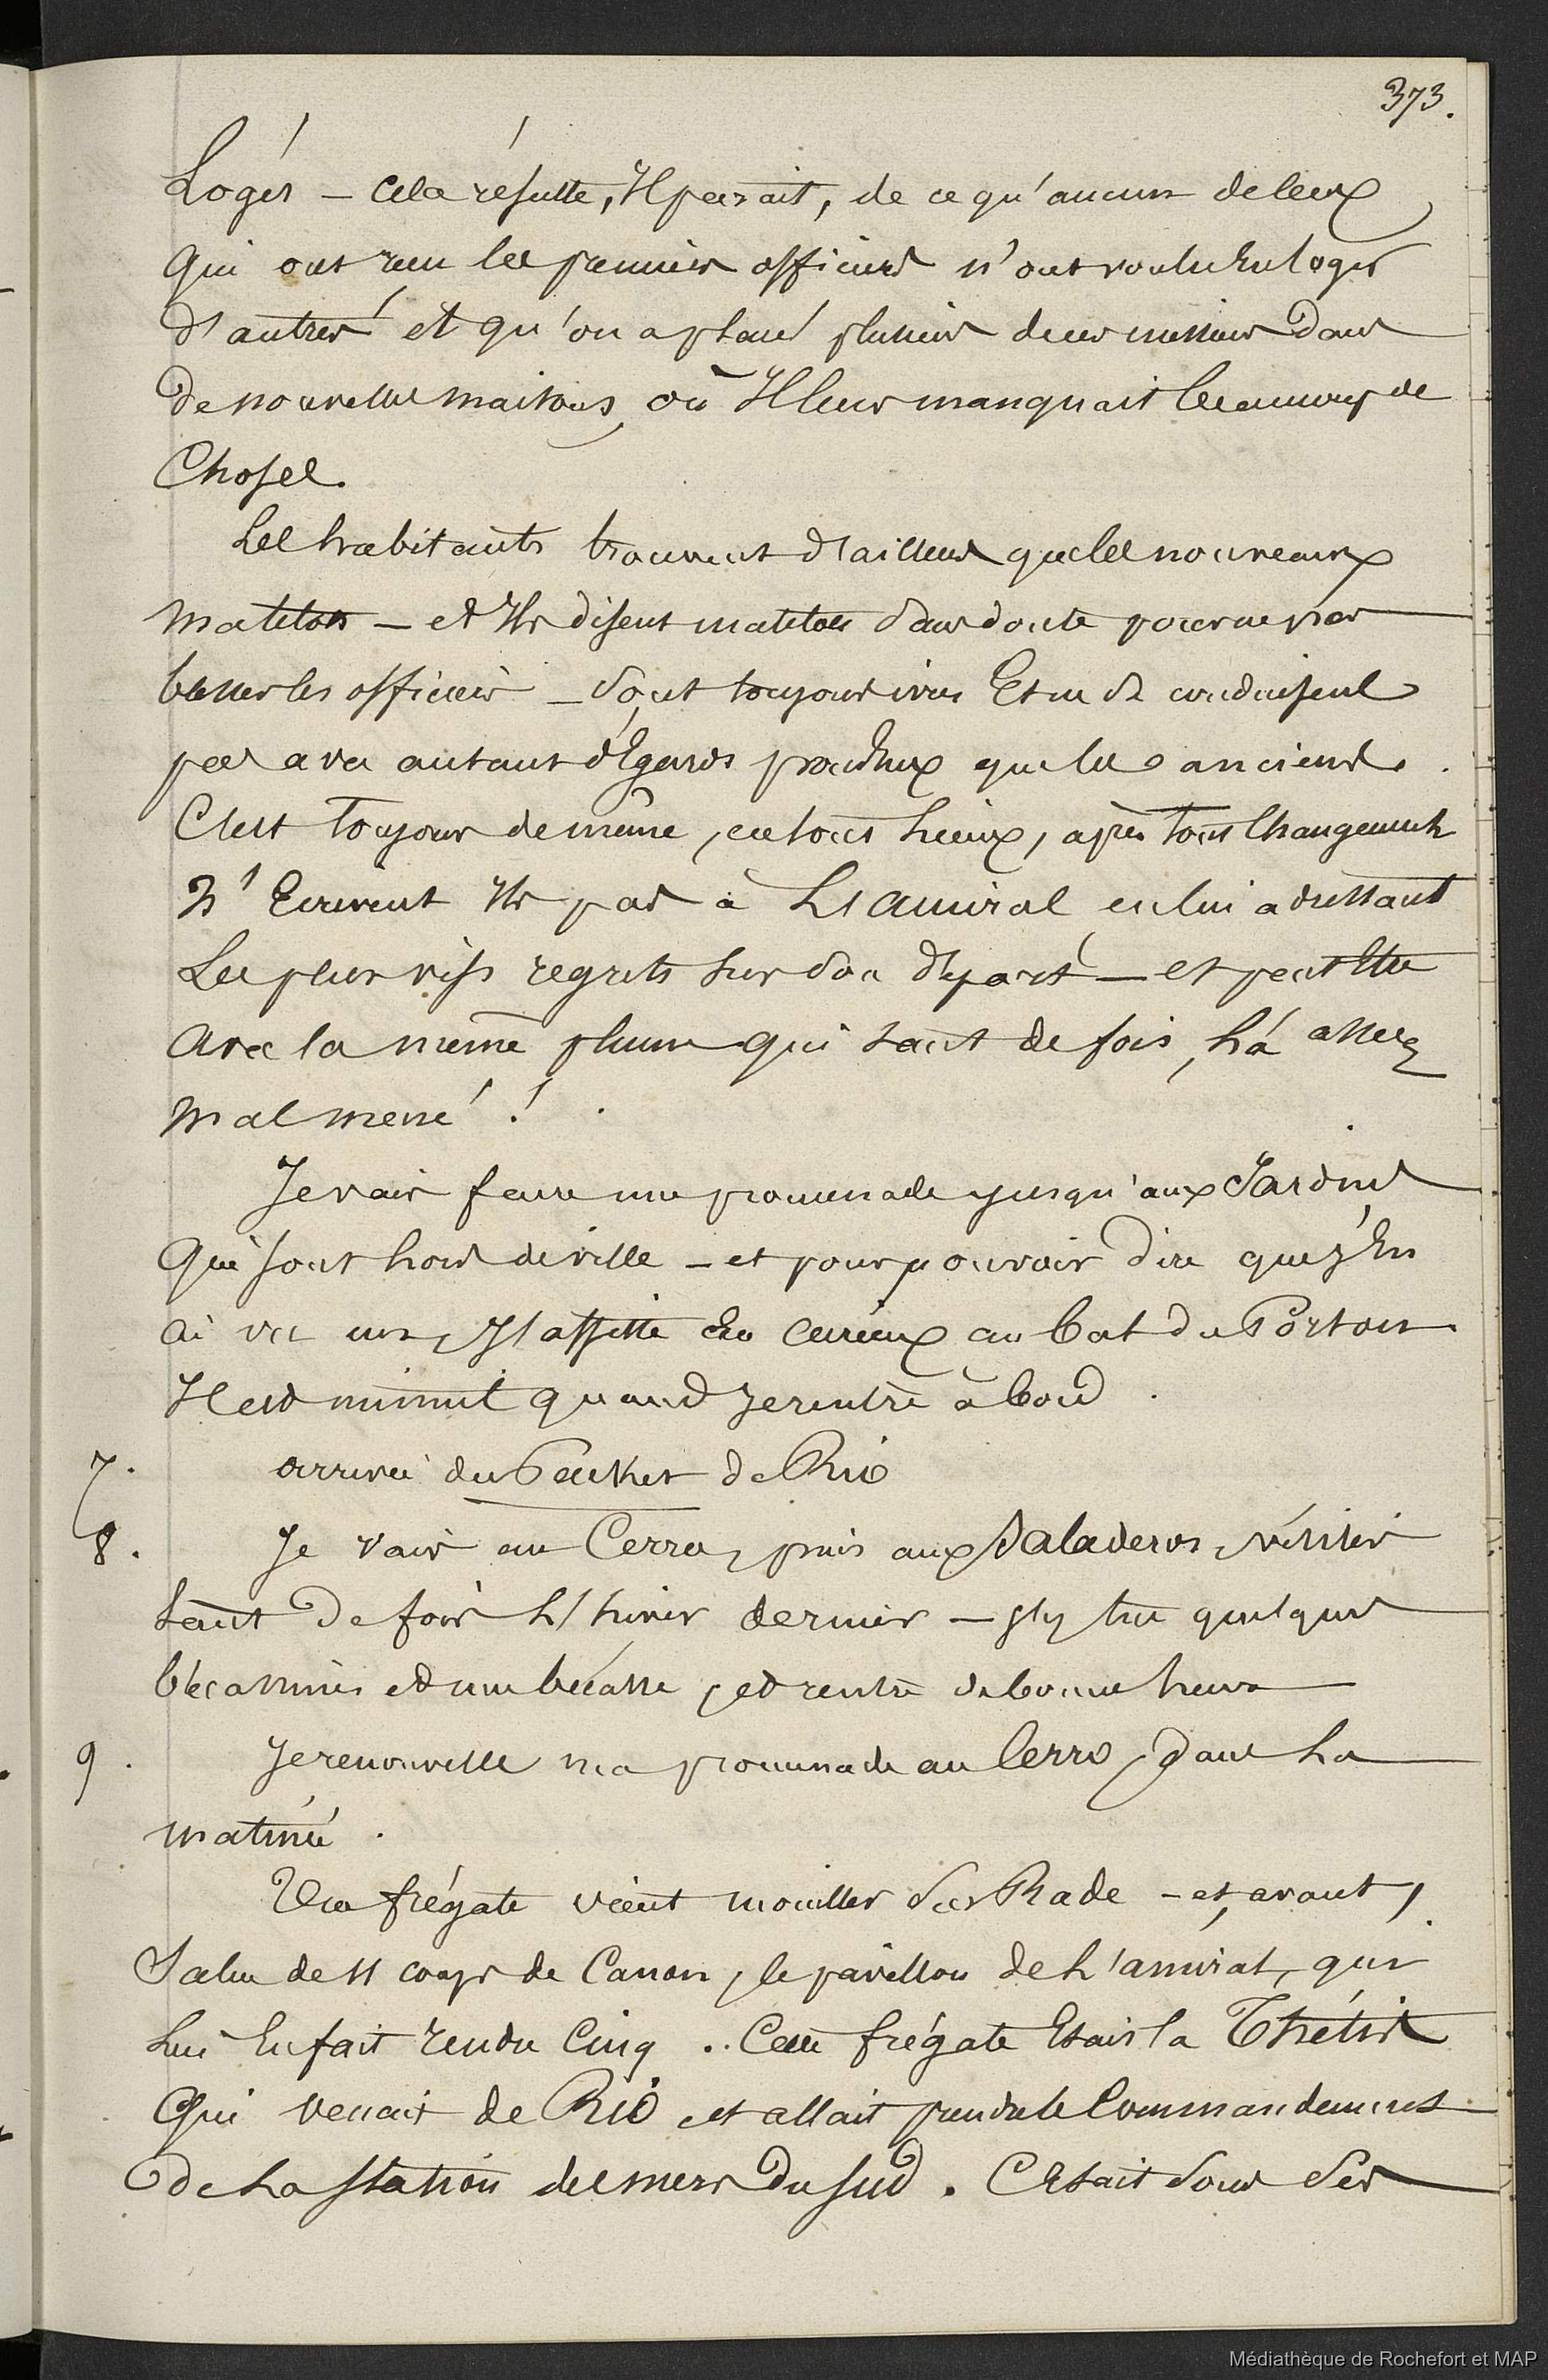 373.
Logés – Cela résulte, Il parait, de ce qu'aucun de ceux
Qui ont reçu les premiers officiers n'ont voulu En loger
d'autres et qu'on a placé plusieurs de ces messieurs Dans
De nouvelles maisons où Il leur manquait beaucoup de
Choses.
Les habitants trouvent d'ailleurs que les nouveaux
matelots – et Ils disent matelots Sans doute pour ne pas
blesser les officiers – Sont toujours ivres Et ne se conduisent
pas avec autant d'Egards pour Eux que les anciens.
C'est toujours de même, en tous lieux, après tous Changements
N'Ecrivent Ils pas à L'amiral en lui adressant
Les plus vifs regrets sur Son départ – et peut Etre
avec la même plume qui tant de fois, l'a assez
mal mené !
Je vais faire une promenade jusqu'aux Jardins
Qui sont hors de ville – et pour pouvoir Dire que j'En
ai vu un, J'assiste En Curieux au bal du
Il est minuit quand Je rentre à bord.
7. arrivée du Packet de Rio
8. Je vais au Cerro, puis aux Saladeros, visités
tant De fois L'hiver dernier – j'y tue quelques
bécassines et une bécasse, et rentre de bonne heure
9. Je renouvelle ma promenade au Cerro, Dans La
matinée.
Une frégate vient mouiller Sur Rade – et, avant,
Salue de 11 coups de Canon, le pavillon de L'amiral, qui
Lui En fait rendre Cinq.. Cette frégate Etait la Thétis
Qui venait de Rio et allait prendre le Commandement
De La Station des mers Du Sud. C'Etait Sous Ses
Médiathèque de Rochefort et MAP